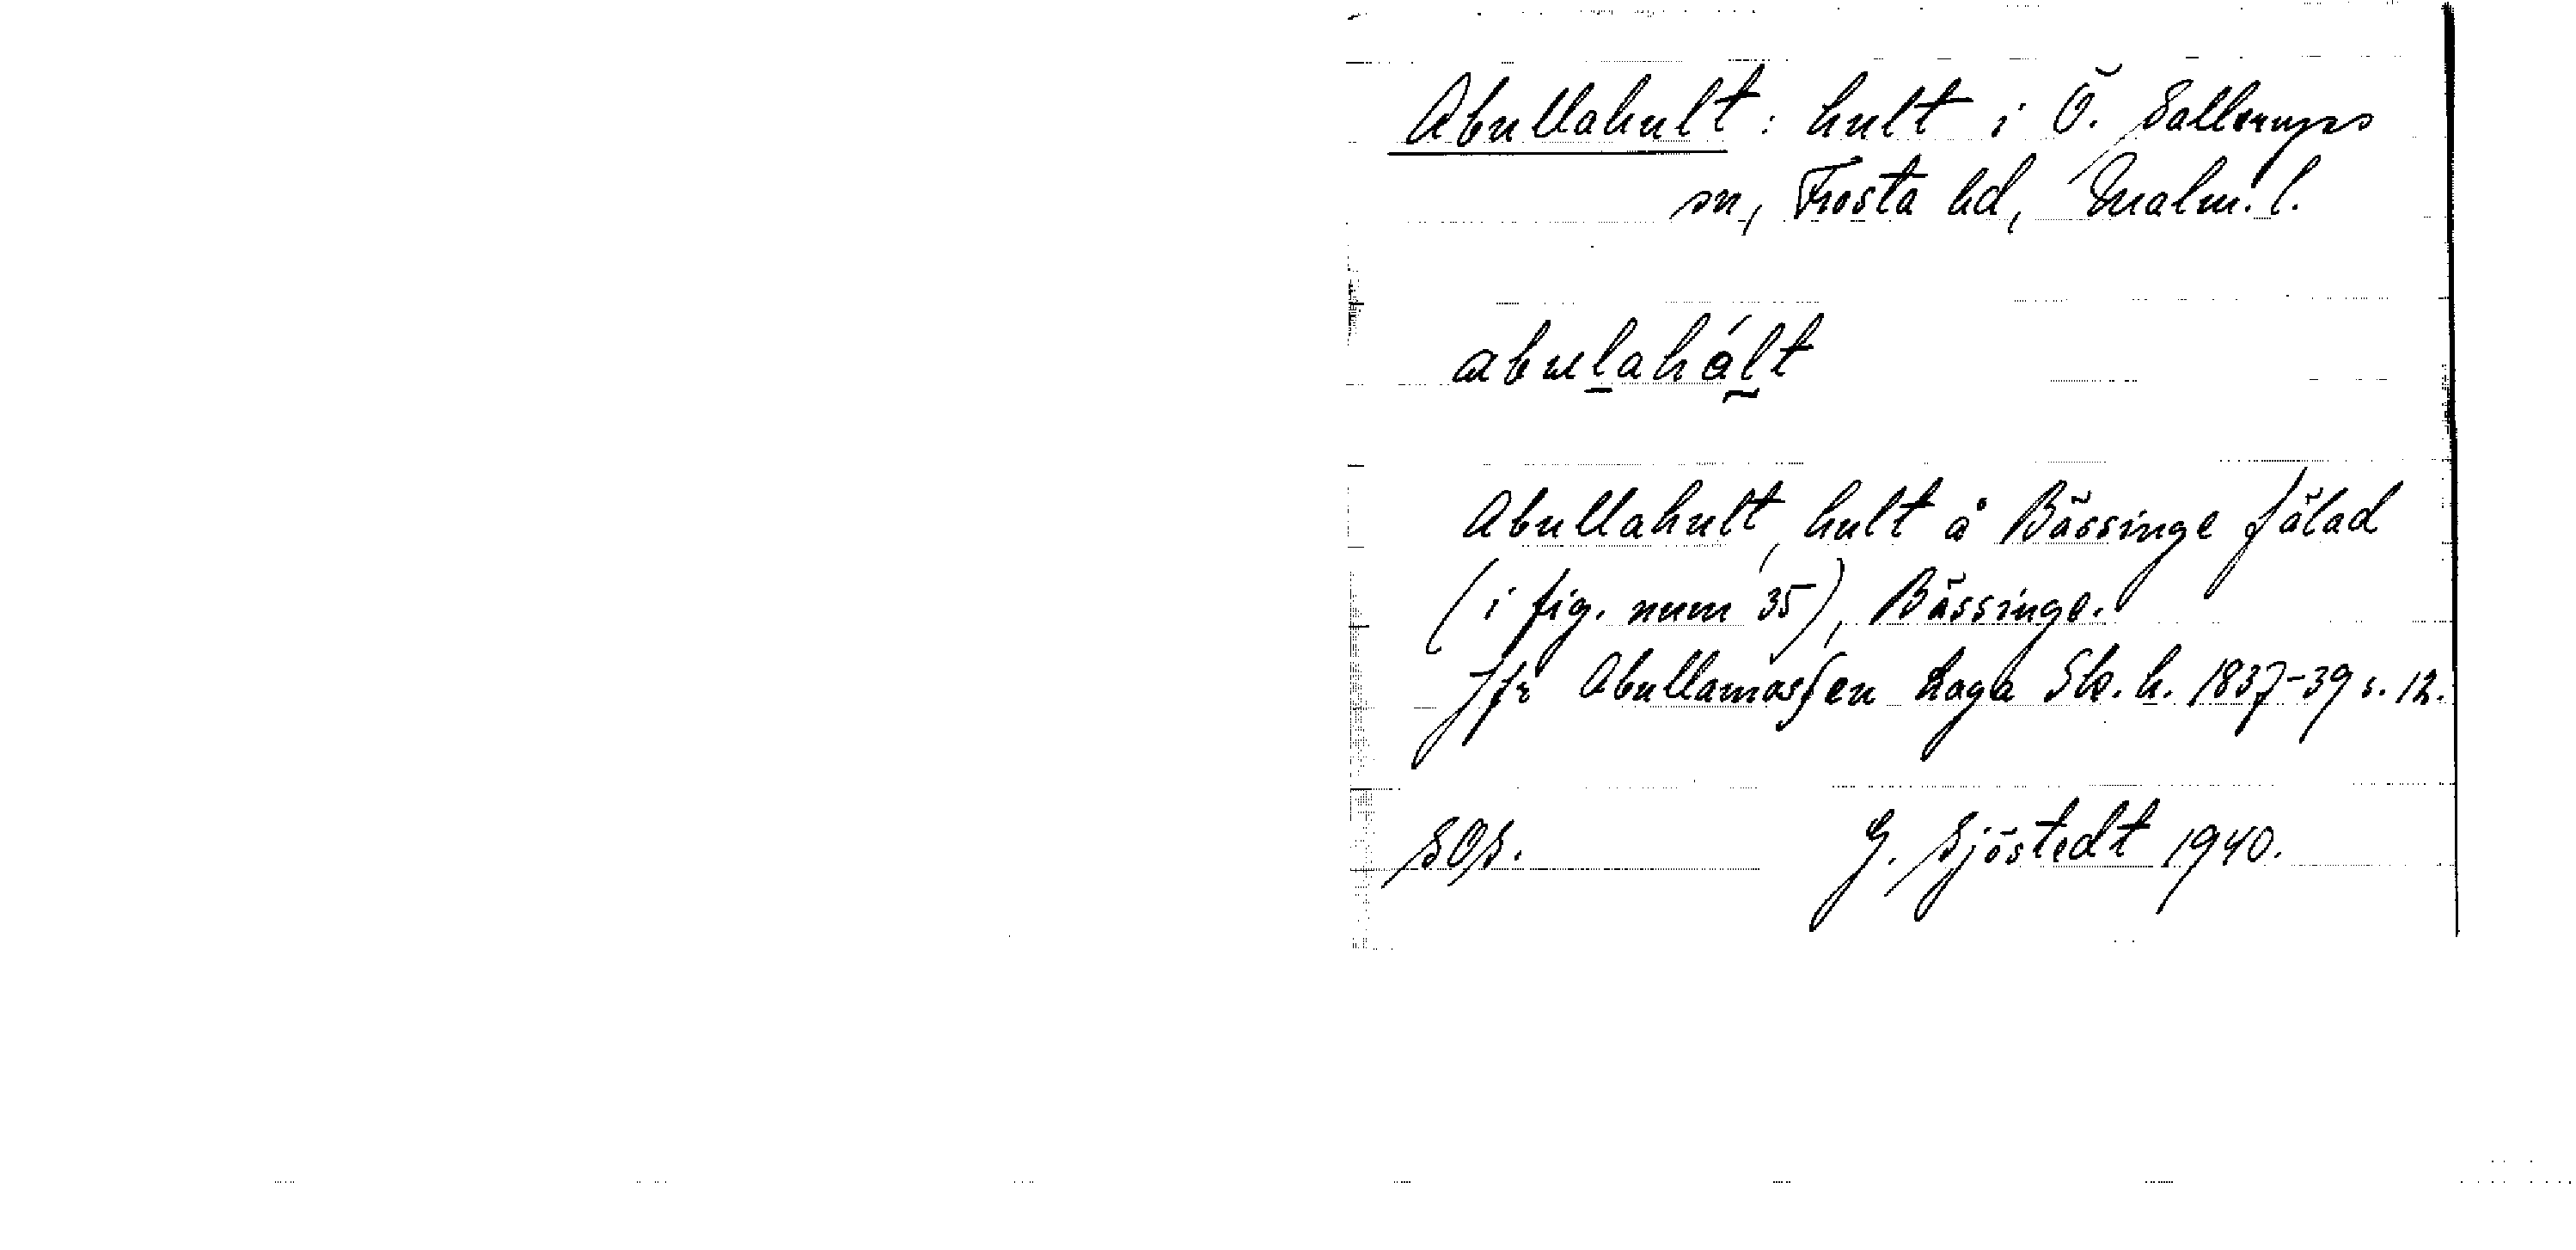 Abullahult: hult i Ö. Sallerups
sn, Frosta hd, Malm. l.
abulahált
Abullahult, hult å Bässinge fälad
(i fig. num 35), Bässinge.
Jfr Abullamossen Laga Sk. h. 1837-39 s. 12.
SOS. G. Sjöstedt 1940.